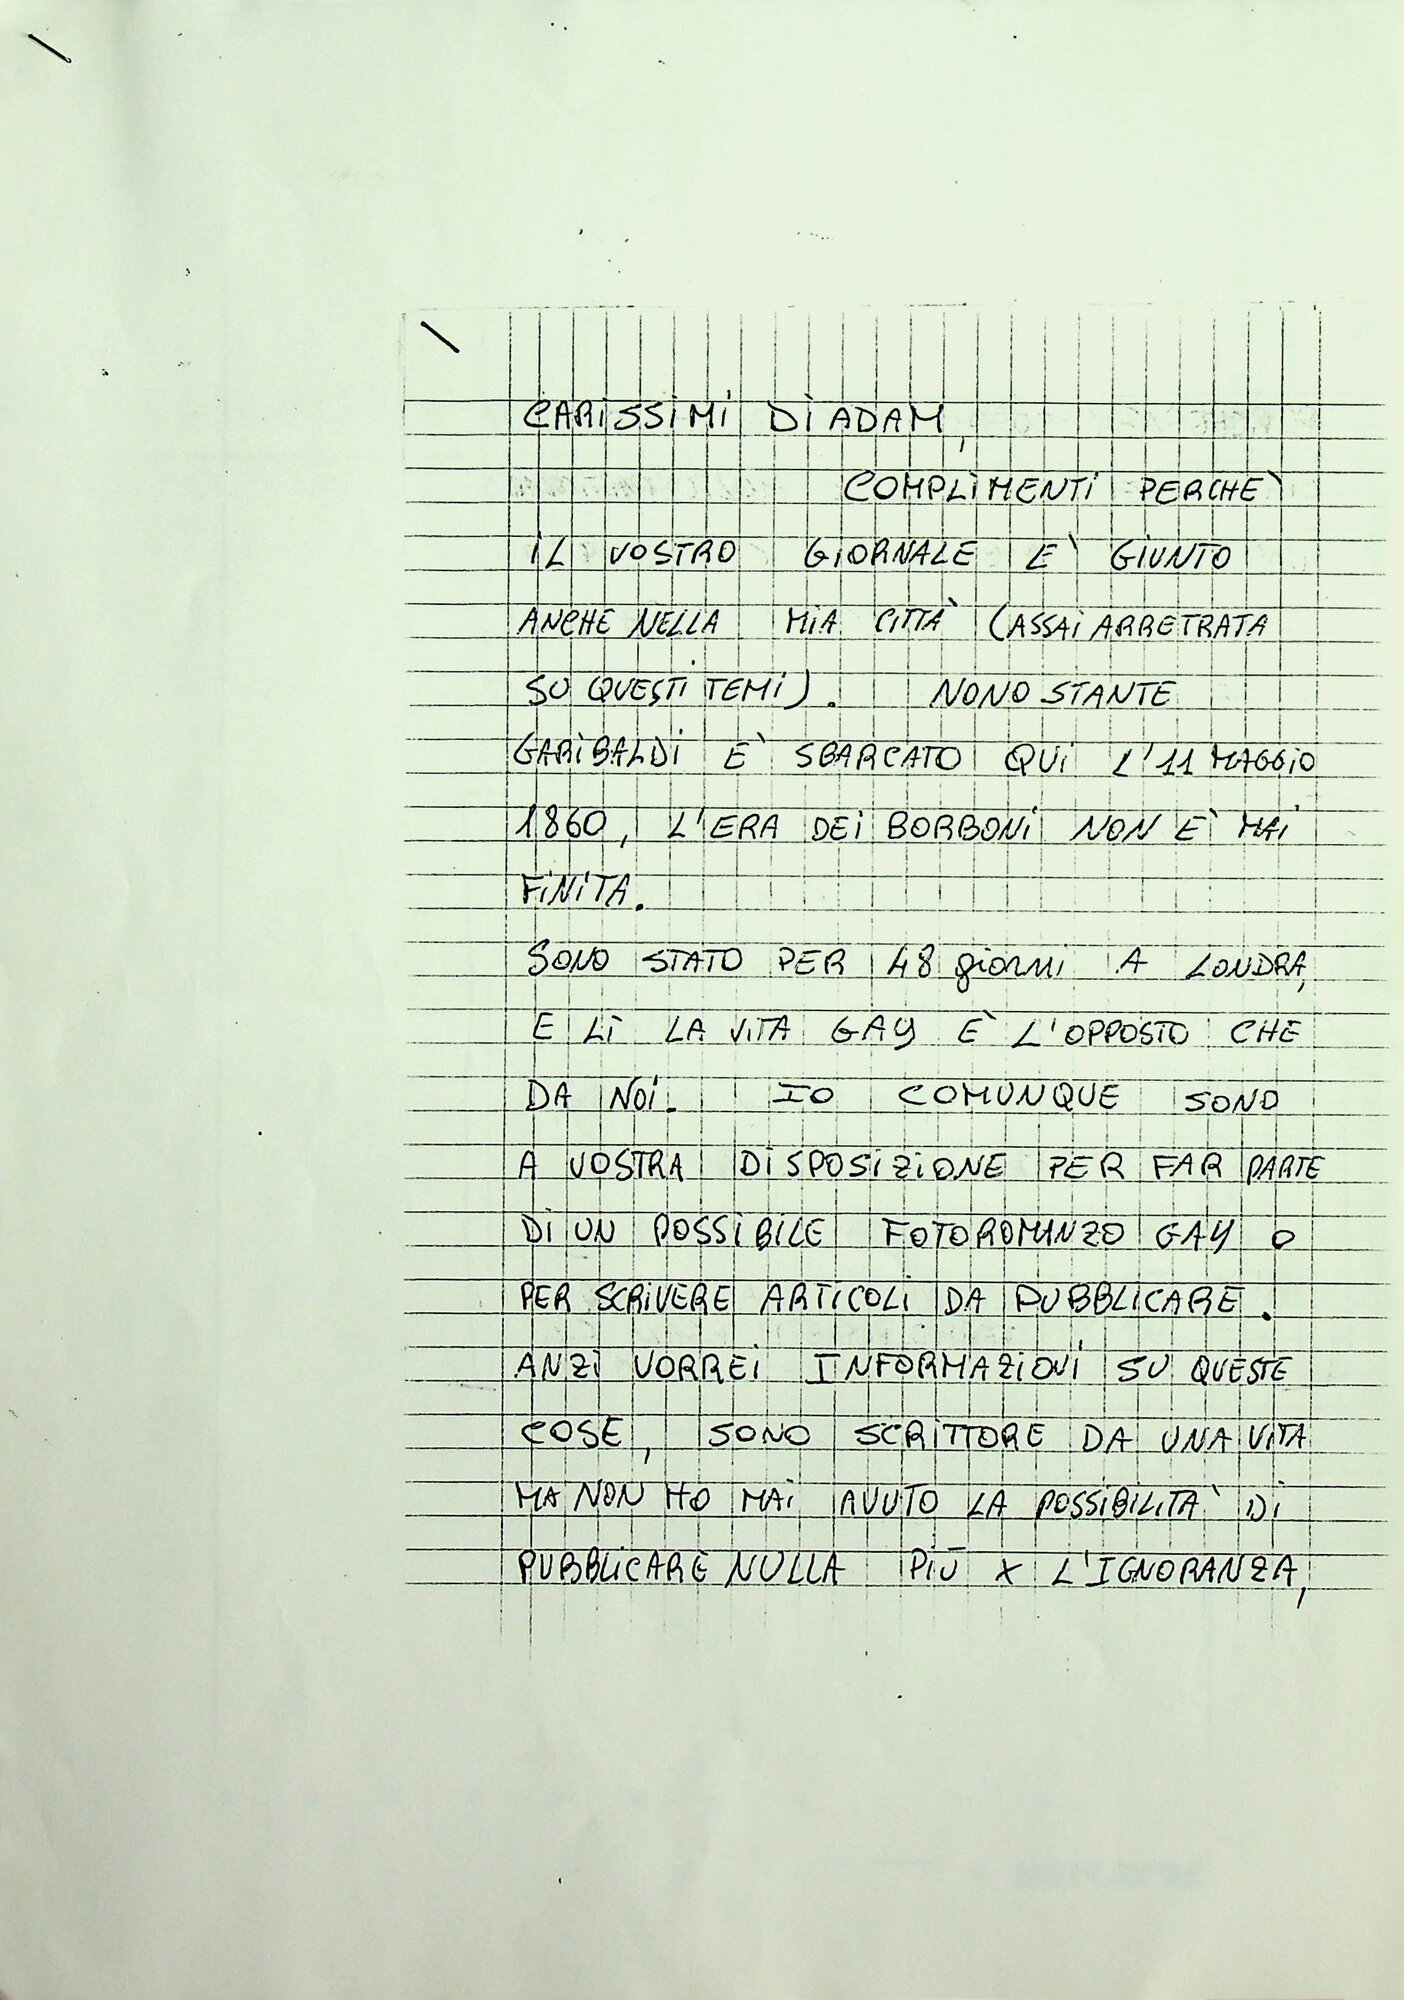 CARISSIMI DI ADAM,
COMPLIMENTI PERCHE'
IL VOSTRO GIORNALE E' GIUNTO
ANCHE NELLA MIA CITTA' (ASSAI ARRETRATA
SU QUESTI TEMI). NONOSTANTE
GARIBALDI E' SBARCATO QUI L'11 MAGGIO
1860, L'ERA DEI BORBONI NON E' MAI
FINITA.
SONO STATO PER 48 giorni A LONDRA,
E LI' LA VITA GAY E' L'OPPOSTO CHE
DA NOI. IO COMUNQUE SONO
A VOSTRA DISPOSIZIONE PER FAR PARTE
DI UN POSSIBILE FOTOROMANZO GAY O
PER SCRIVERE ARTICOLI DA PUBBLICARE.
ANZI VORREI INFORMAZIONI SU QUESTE
COSE, SONO SCRITTORE DA UNA VITA
MA NON HO MAI AVUTO LA POSSIBILITA' DI
PUBBLICARE NULLA PIÙ X L'IGNORANZA,